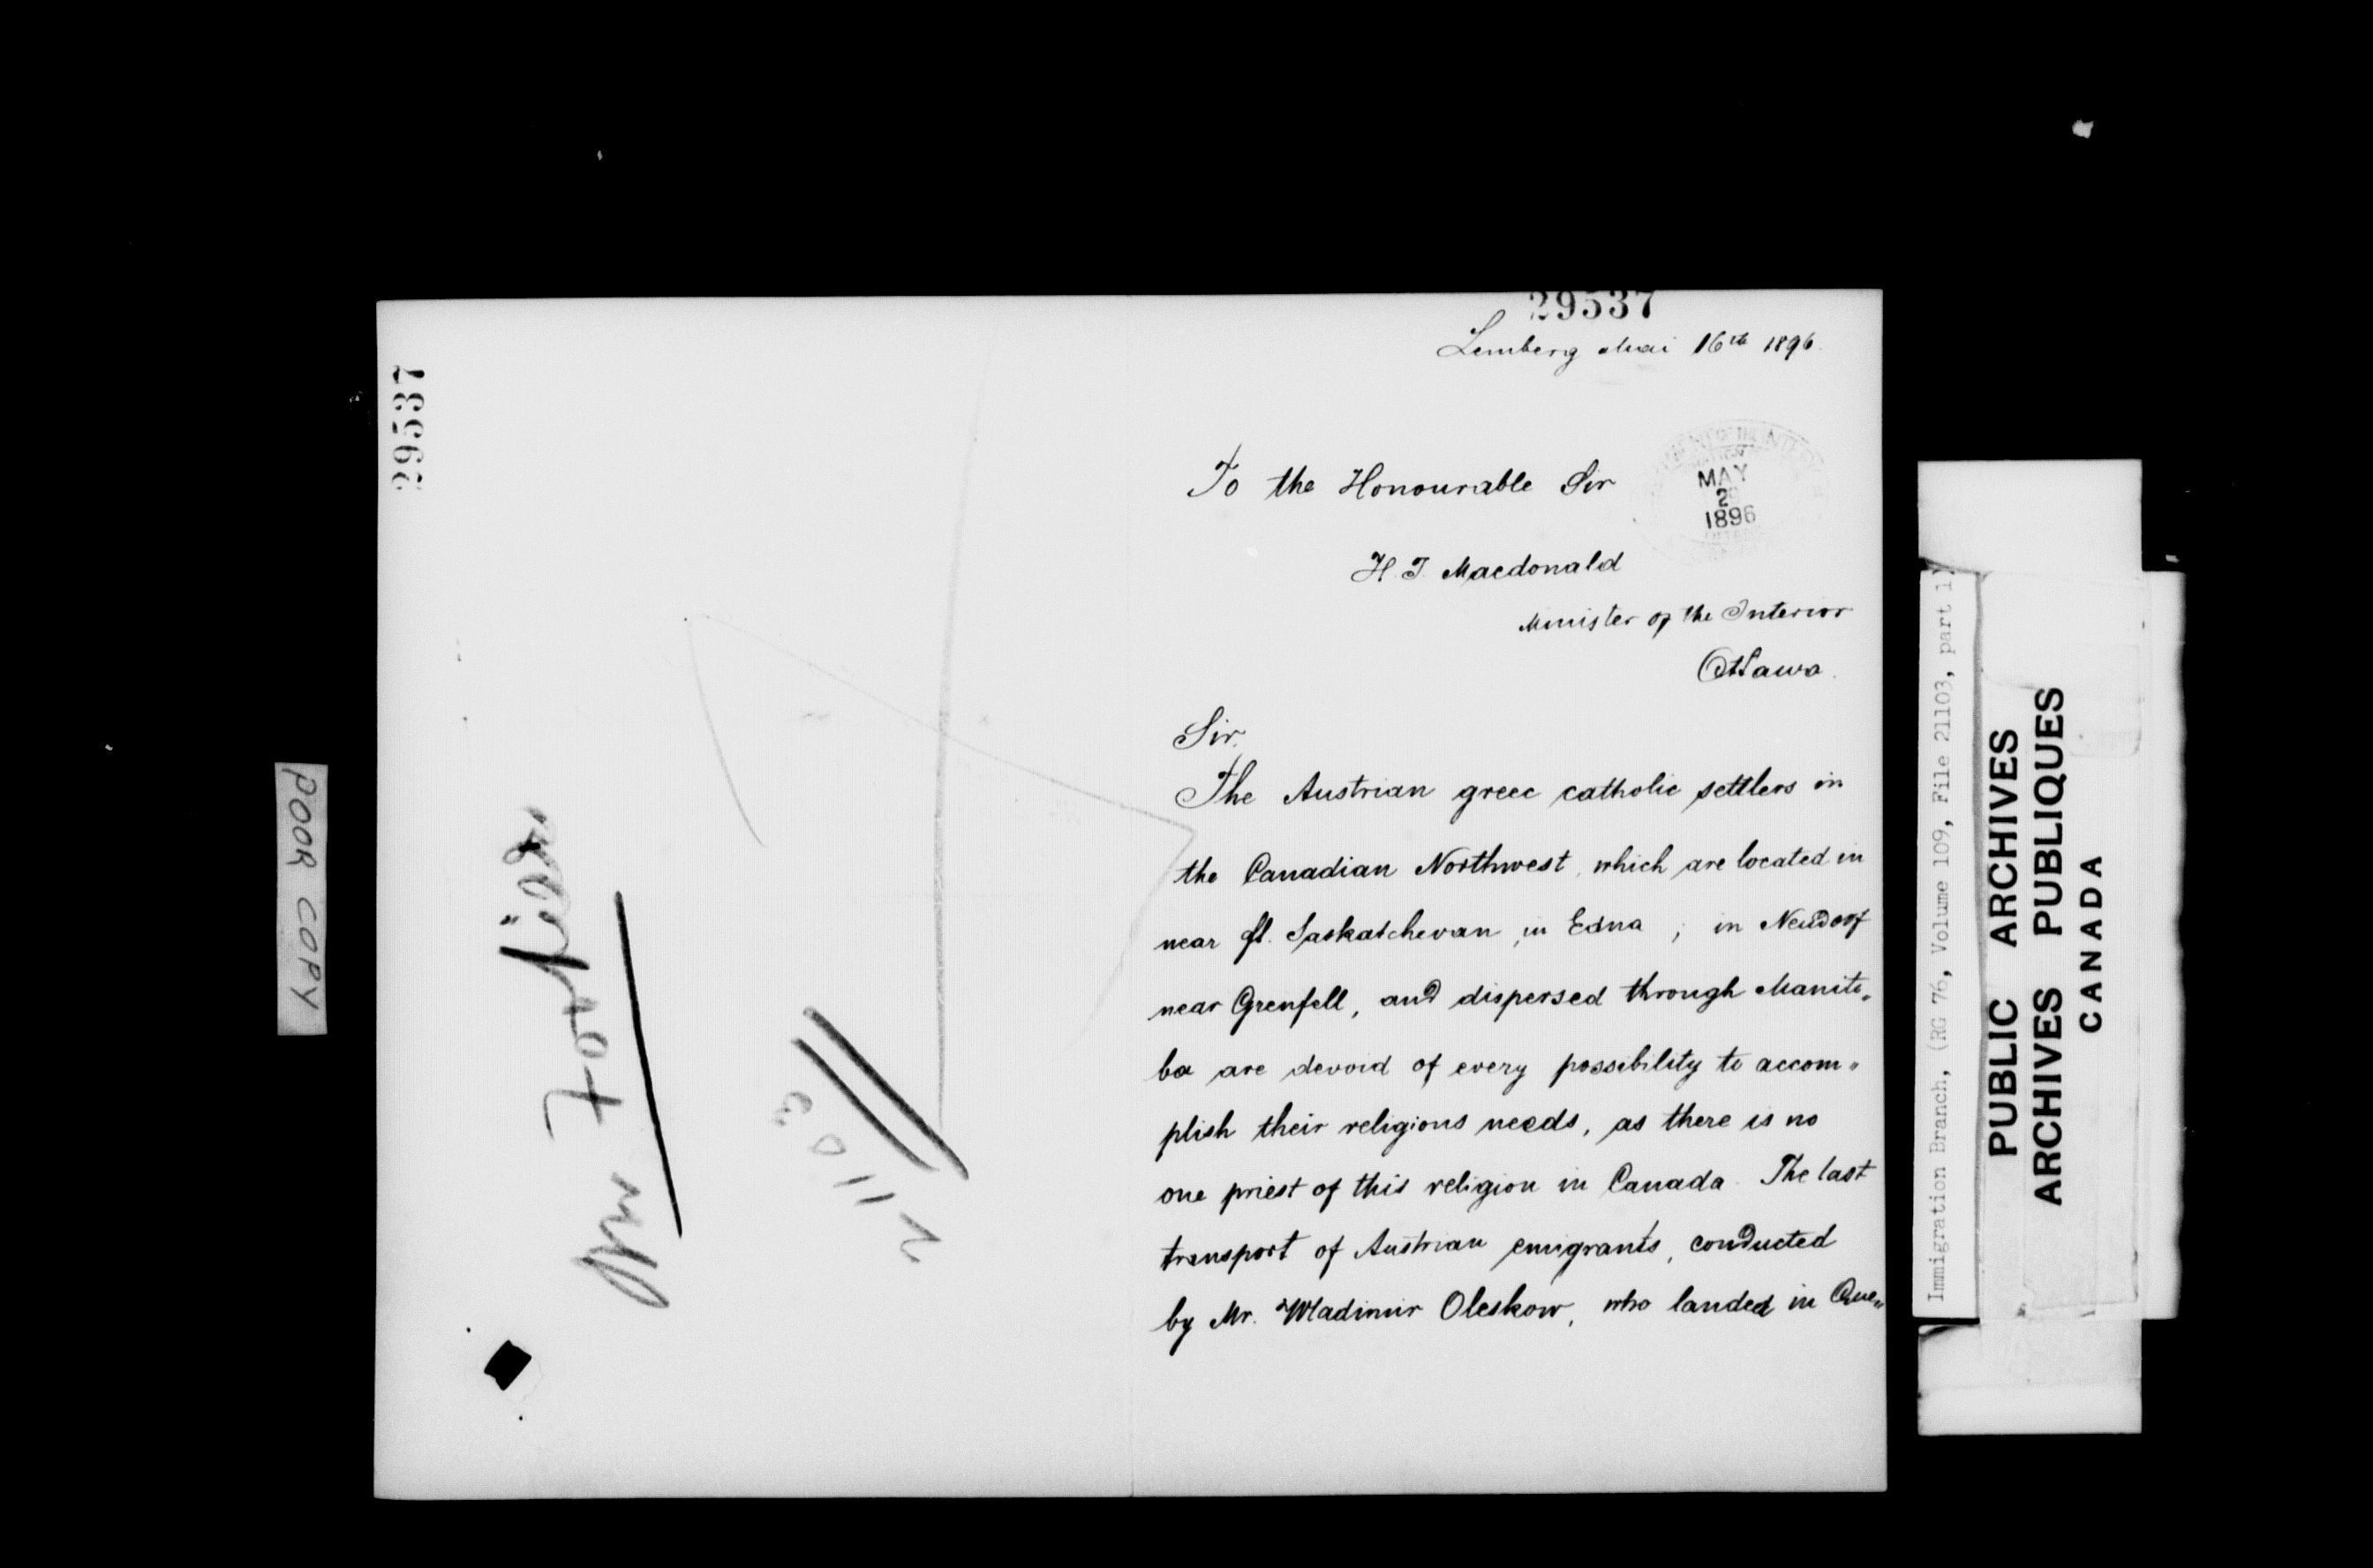 29537
29537
Lemberg Mai 16th 1896.
MAY
1896
To the Honourable Sir
H. J. Macdonald
Minister of the Interior
Ottawa.
Sir.
The Austrian greec catholic settlers in
the Canadian Northwest, which are located in
near ft. Saskatchevan, in Edna, ; in Neudorf
near Grenfell, and dispersed through Manito„
ba are devoid of every possibility to accom„
plish their religious needs, as there is no
one priest of this religion in Canada. The last
transport of Austrian emigrants, conducted
by Mr. Wladimir Oleskow, who landed in Que„
POOR COPY
Immigration Branch, (RG 76, Volume 109, File 21103, part 1)
PUBLIC ARCHIVES
ARCHIVES PUBLIQUES
CANADA